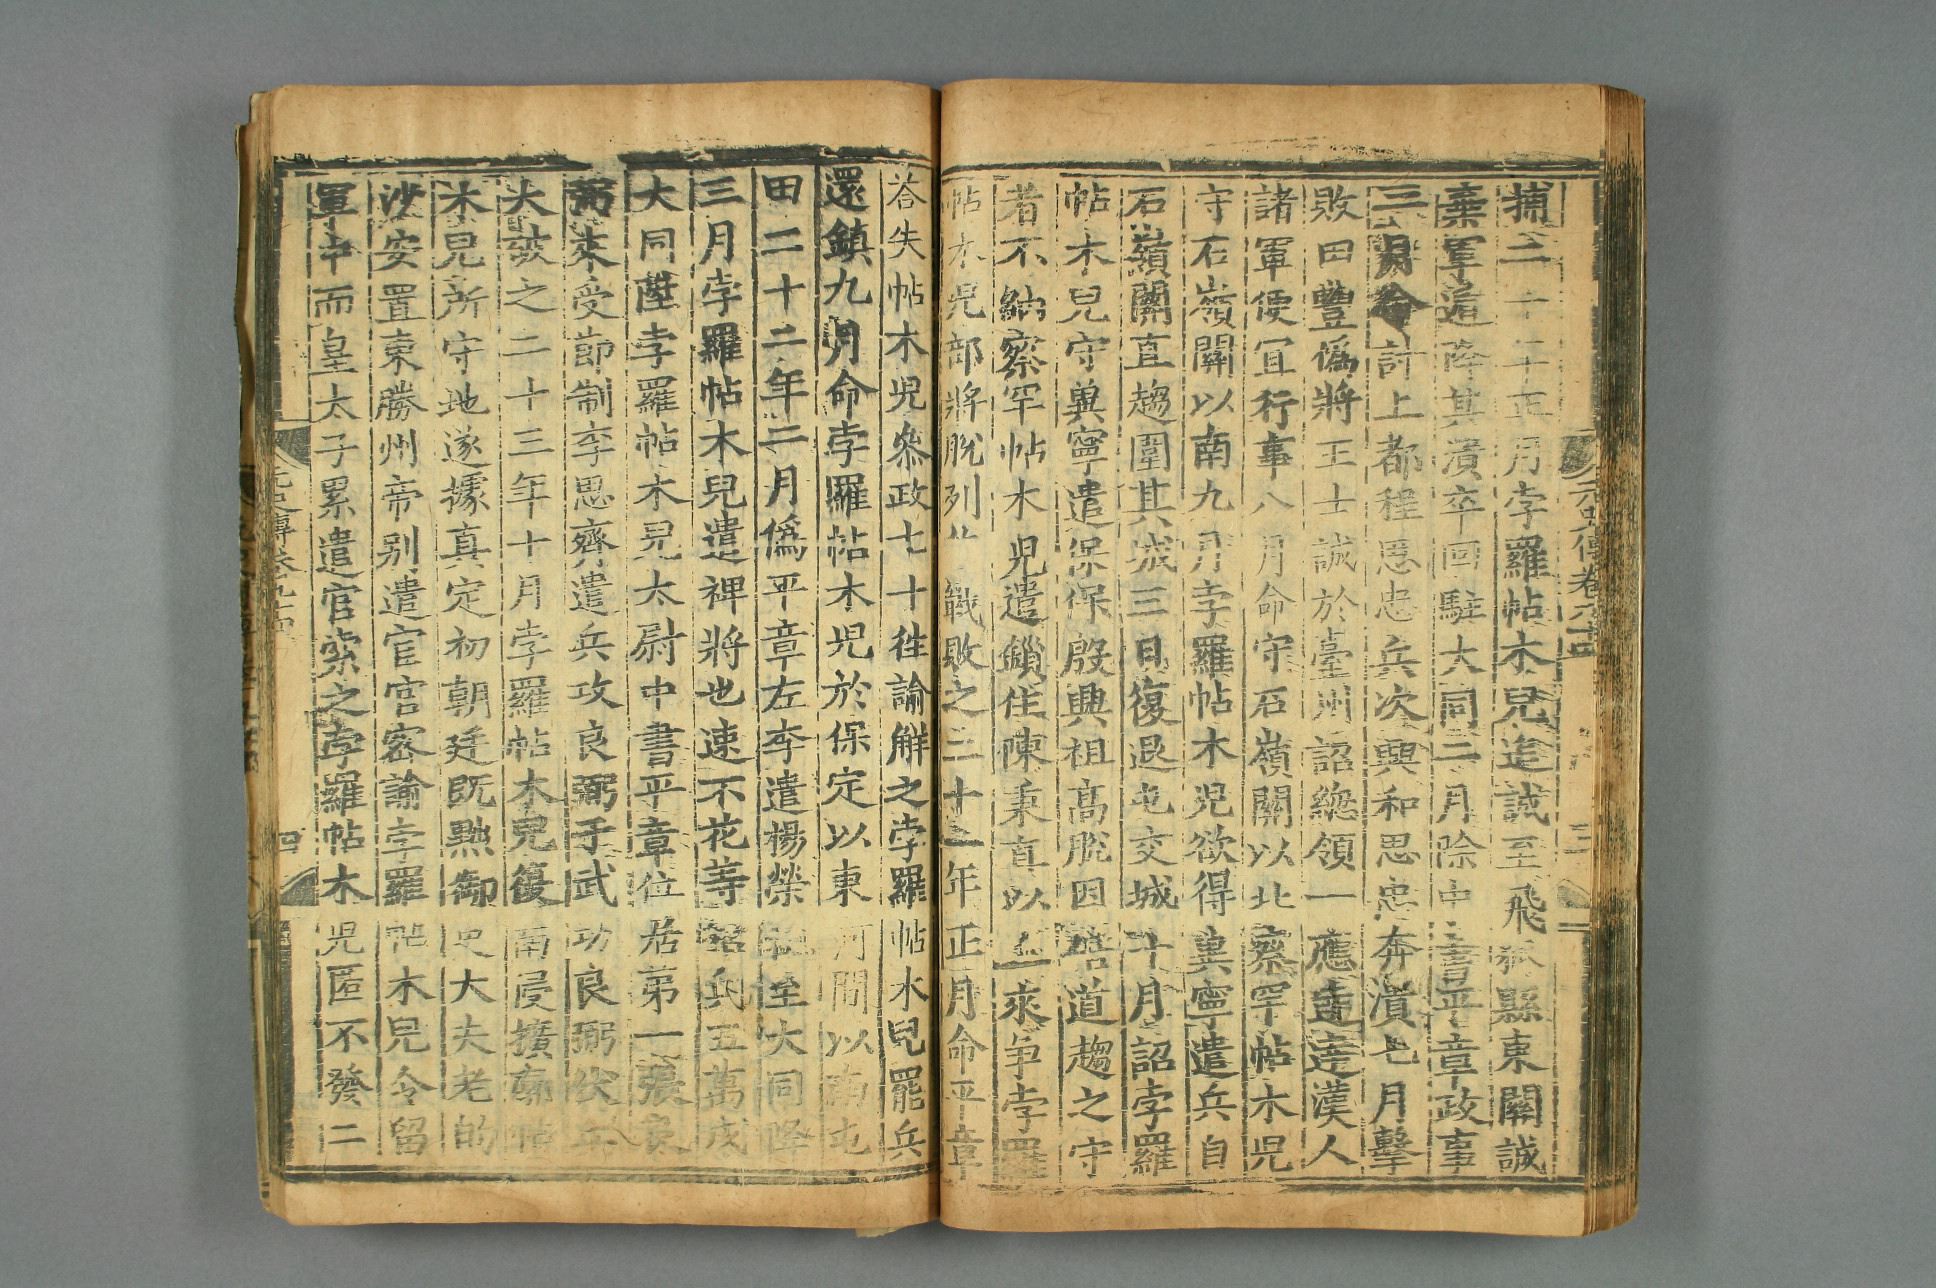 捕二十年正月孛羅帖木兒追誠至飛狐縣東關誠
棄軍遁降其潰卒回駐大同二月除中書平章政事
三月命計上都程思忠兵次興和思忠奔潰七月擊
敗田豐偽將王士誠於臺州詔總領一應達達漢人
諸軍便宜行事八月命守石嶺關以北察罕帖木兒
守石嶺關以南九月孛羅帖木兒欲得冀寧遣兵自
石嶺關直趨圍其城三日復退屯交城十月詔孛羅
帖木兒守冀寧遣保保殷興祖高脫因踣道趨之守
者不納察罕帖木兒遣鎖住陳秉直以兵來爭孛羅
帖木兒部將脫列 戰敗之二十一年正月命平章
荅失帖木兒叅政七十徃諭解之孛羅帖木兒罷兵
還鎮九月命孛羅帖木兒於保定以東河間以南屯
田二十二年二月偽平章左李遣楊榮祖至大同降
三月孛羅帖木兒遣裨將也速不花等 兵五萬戍
大同陞孛羅帖木兒太尉中書平章位居第一張良
弼來受節制李思齊遣兵攻良弼于武功良弼伏兵
大破之二十三年十月孛羅帖木兒復南侵擴廓帖
木兒所守地遂據真定初朝廷既黜御史大夫老的
沙安置東勝州帝别遣官官密諭孛羅帖木兒令留
軍中而皇太子累遣官索之孛羅帖木兒匿不發二
元史傳卷九十四
四